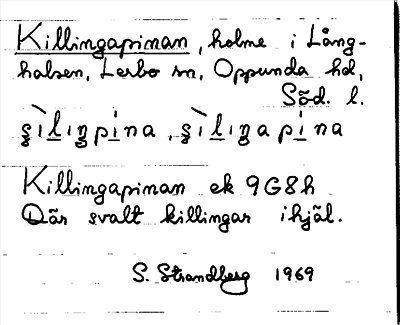 Killingapinan, holme i Lång-
halsen, Lerbo sn, Oppunda hd,
Söd. l.
Killingapinan ek 9G8h
Där svalt killingar ihjäl.
S. Strandberg 1969